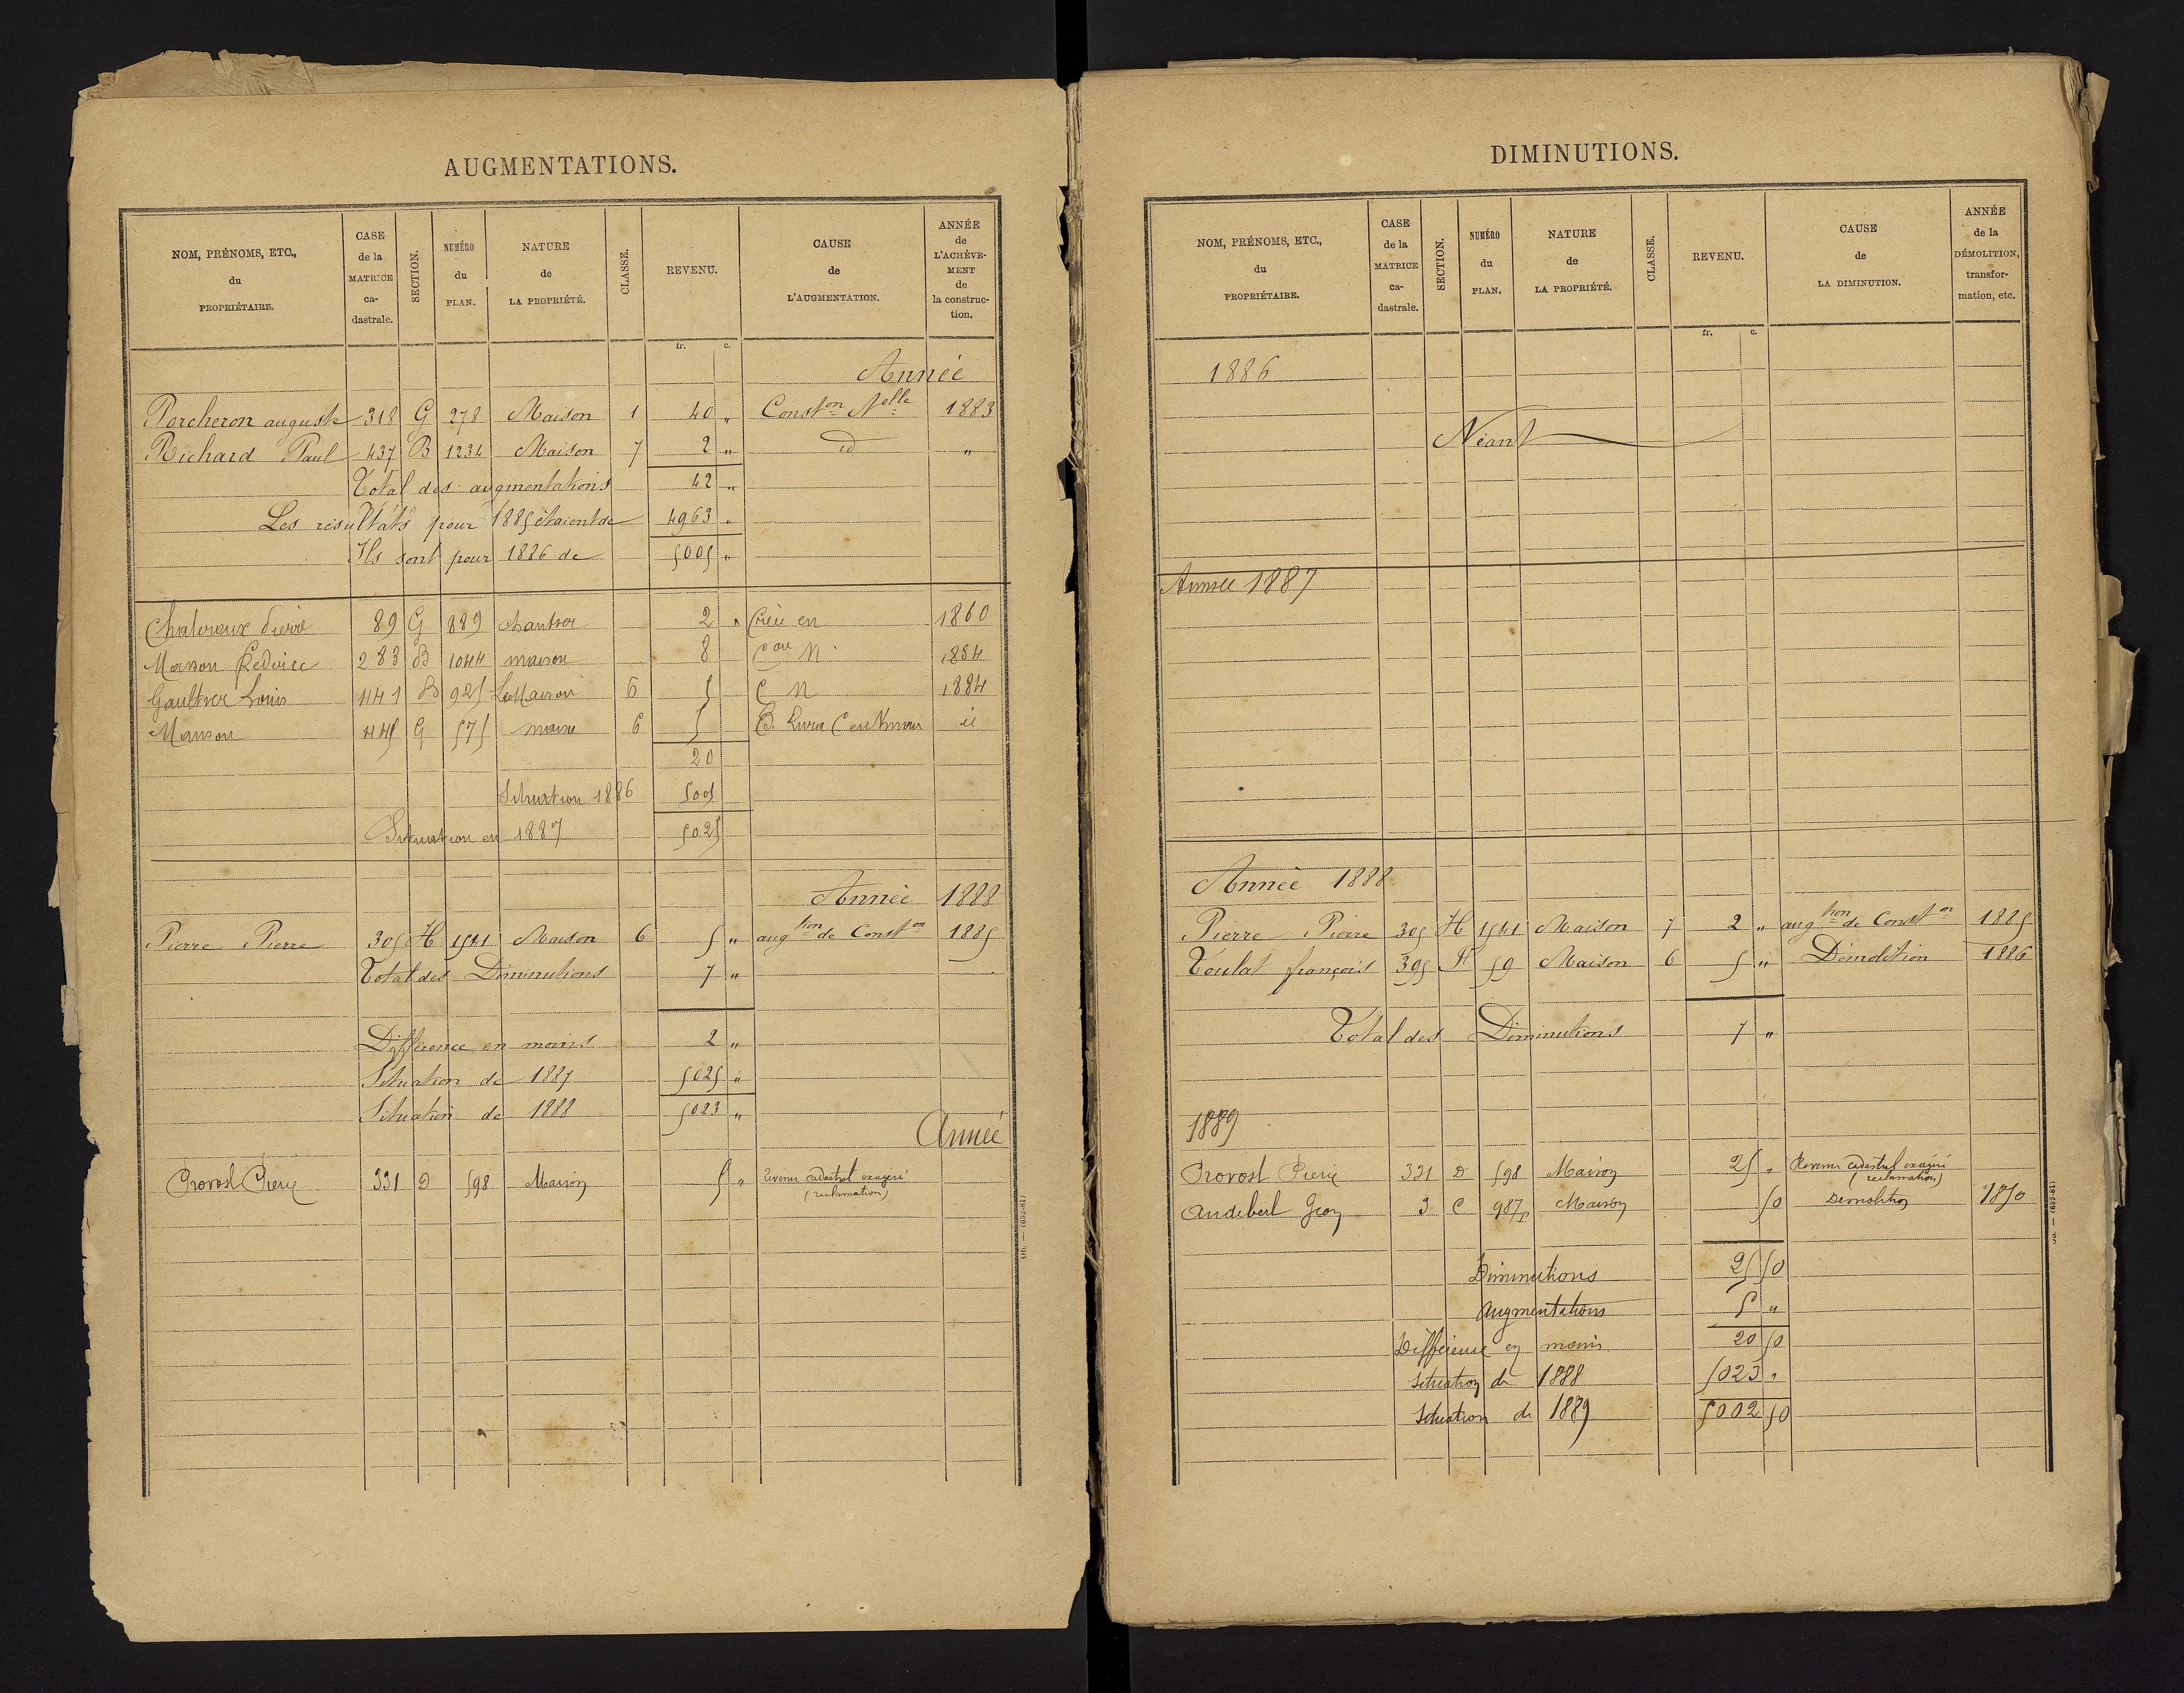 AUGMENTATIONS.
NOM, PRÉNOMS, ETC.,
du
PROPRIÉTAIRE.
CASE
de la
MATRICE
ca-
dastrale.
SECTION.
NUMÉRO
du
PLAN.
NATURE
de
LA PROPRIÉTÉ.
CLASSE.
REVENU.
CAUSE
de
L'AUGMENTATION.
ANNÉE
de
L'ACHÈVE-
MENT
de
la construc-
tion.
fr. c.
Année
Porcheron auguste 318 G 278 Maison 1 40 " Const.on N.elle 1883
Richard Paul 437 B 1234 Maison 7 2 " id "
Total des augmentations 42 "
Les résultats pour 1885 étaient de 4963 "
Ils sont pour 1886 de 5005 "
Pierre 89 G 889 2 " en 1860
283 B 1044 maison 8 N 1884
Gaultier Louis 441 B 925 Maison 6 5 C N 1884
445 G 575 6 5 id
20
Situation 1886 5005
Situation en 1887 5025
Année 1888
Pierre Pierre 305 H 1541 Maison 6 5 " aug.tion de Const.on 1885
Total des Diminutions 7 "
Différence en moins 2 "
Situation de 1887 5025 "
Situation de 1888 5023 "
Année
Provost Pierre 331 D 598 Maison 5 " Revenu cadastral exagéré
(reclamation)
Ob. — (652-81)
DIMINUTIONS.
NOM, PRÉNOMS, ETC.,
du
PROPRIÉTAIRE.
CASE
de la
MATRICE
ca-
dastrale.
SECTION.
NUMÉRO
du
PLAN.
NATURE
de
LA PROPRIÉTÉ.
CLASSE.
REVENU.
CAUSE
de
LA DIMINUTION.
ANNÉE
de la
DÉMOLITION,
transfor-
mation, etc.
fr. c.
1886
Néant
Année 1887
Année 1888
Pierre Pierre 305 H 1541 Maison 7 2 " aug.tion de Const.on 1885
Toulat françois 395 59 Maison 6 5 " Démolition 1886
Total des Diminutions 7 "
1889
Provost Pierre 331 D 598 Maison 25 " Revenu cadastral exagéré
(reclamation)
Audebert 3 C 987 Maison 50 Démolition 1870
Diminutions 25 50
Augmentations 5 "
Différence en moins 20 50
Situation de 1888 5023 "
Situation de 1889 5002 50
Ob. — (652-81)